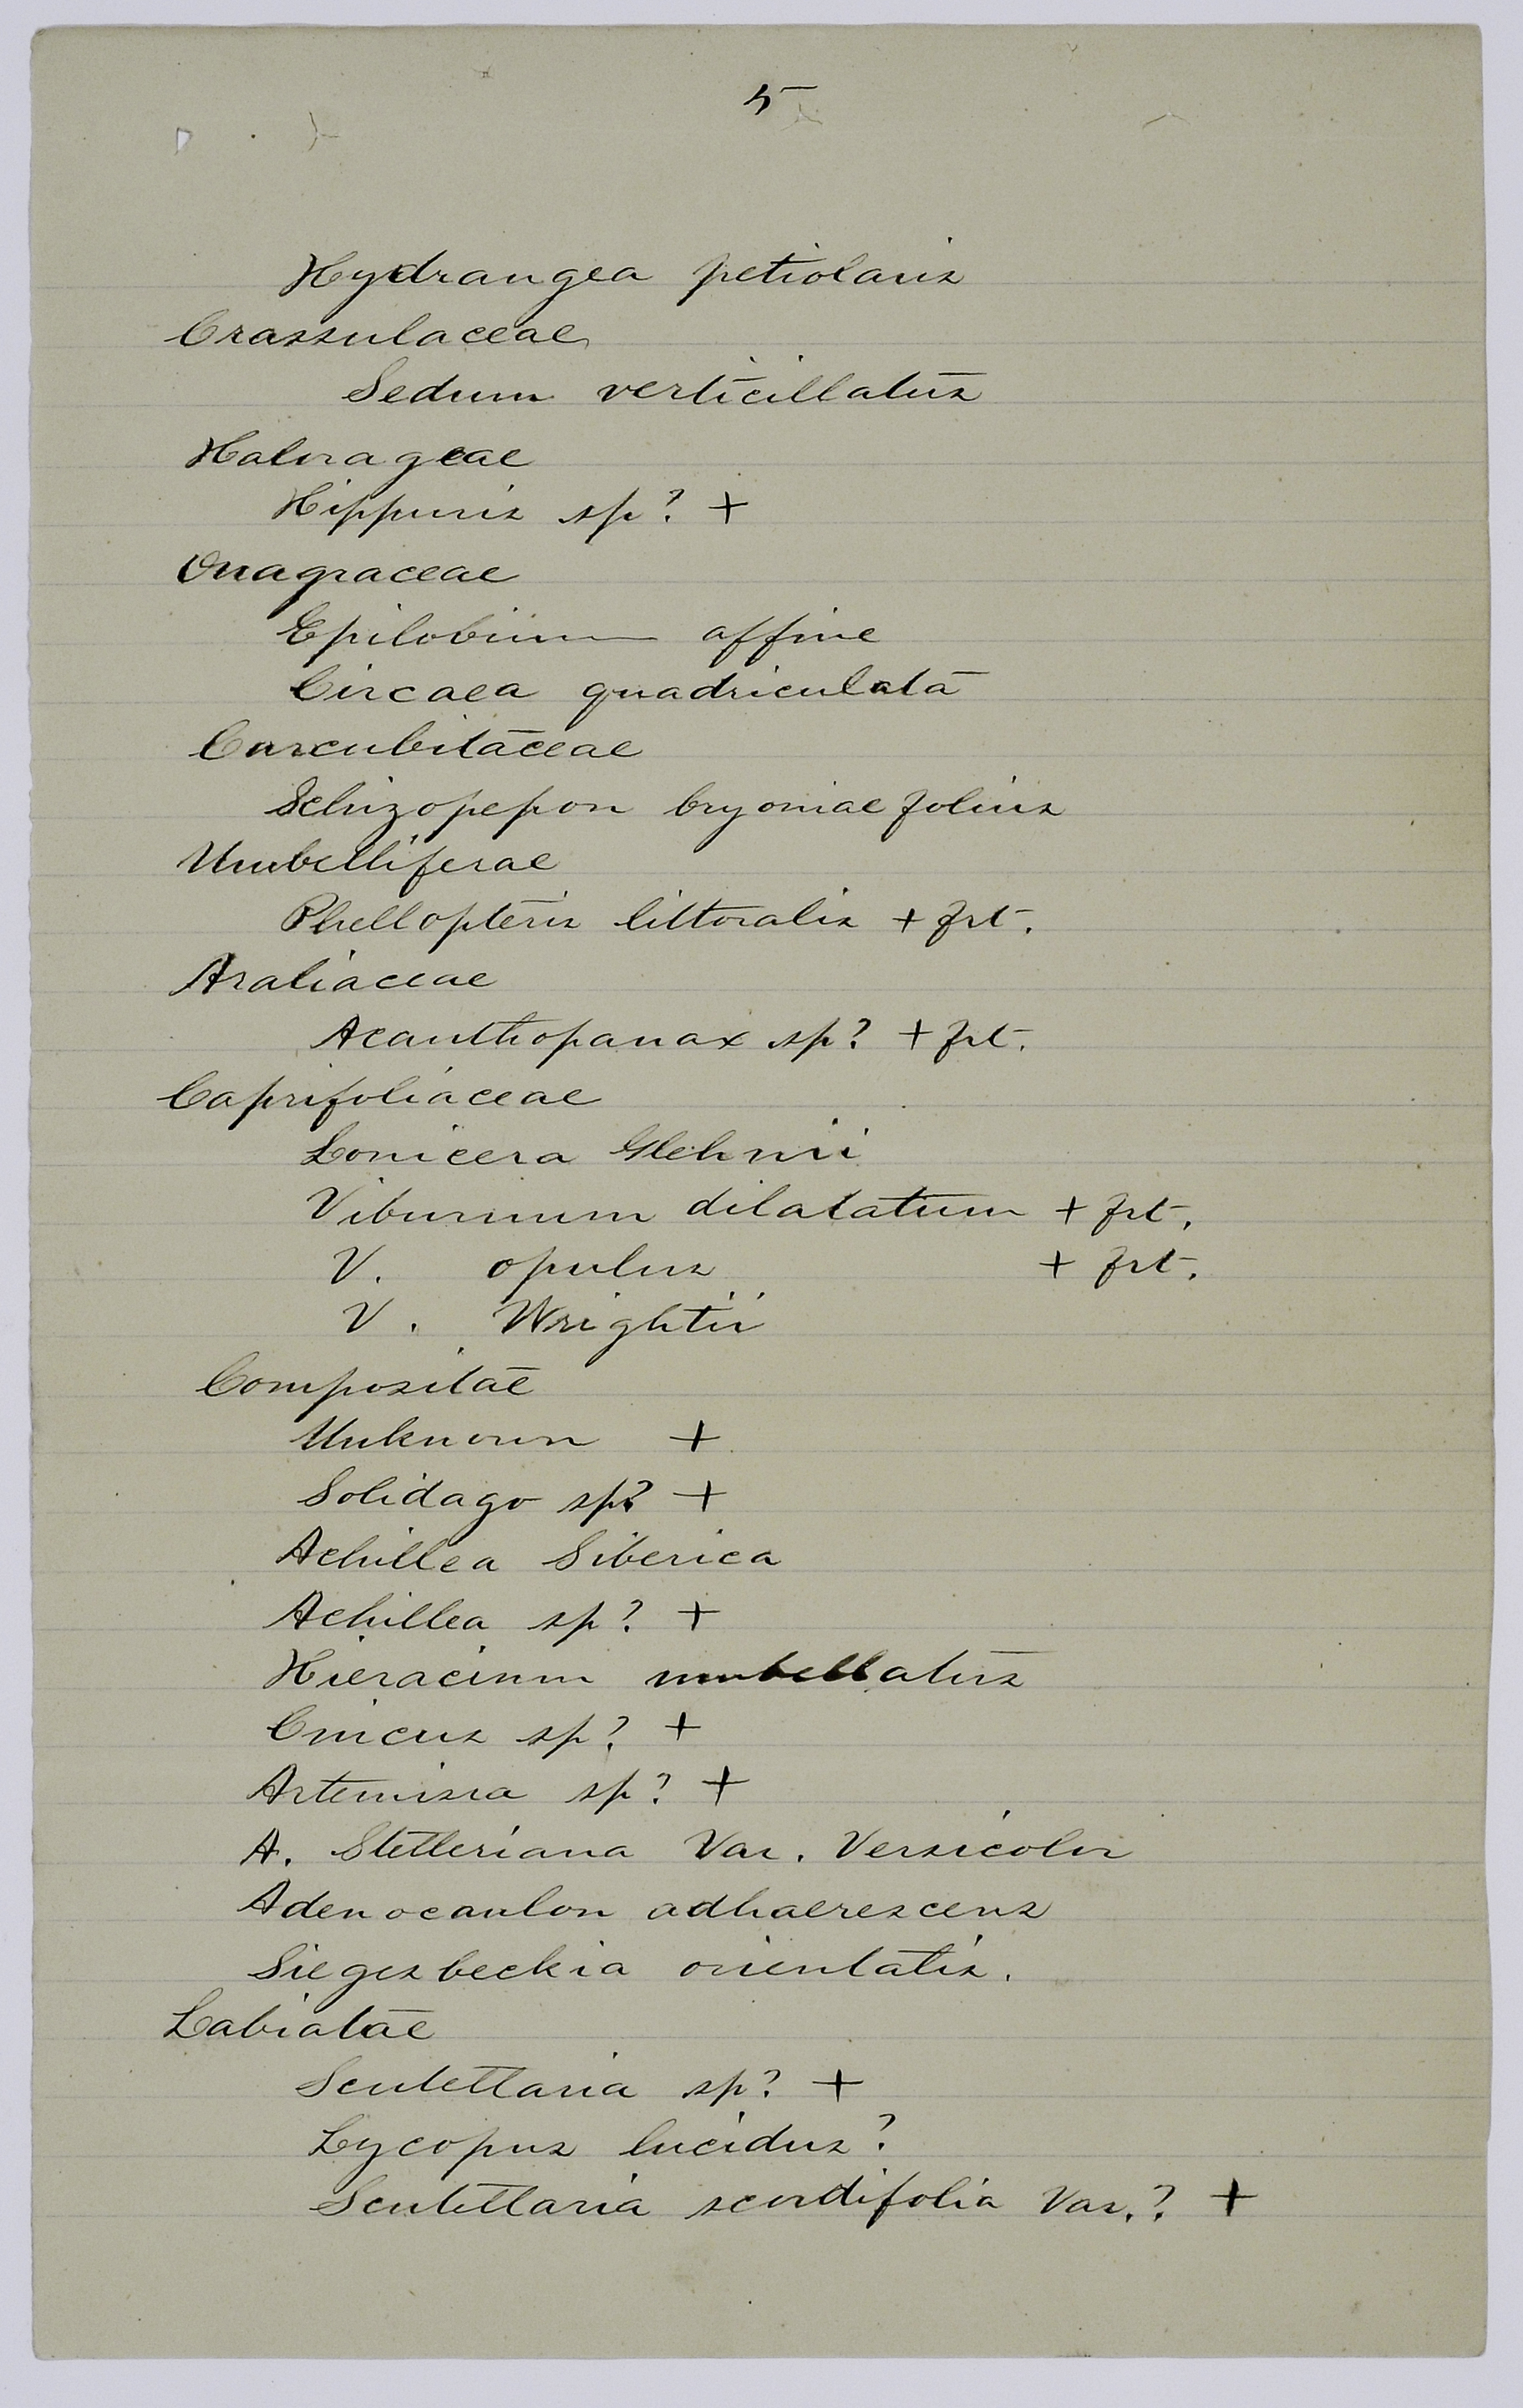 5
Hydrangea petiolaris
Crassulaceae
Sedum verticillatus
Halorageae
Hippuris sp? +
Onagraceae
Epilobium affine
Circaea quadriculata
Curcubitaceae
Schizopepon bryoniaefolius
Umbelliferae
Phellopteris littoralis + frt.
Araliaceae
Acanthopanax sp? + frt.
Caprifoliaceae
Lonicera Glehnii
Viburnum dilatatum + frt.
V. opulus + frt.
V. Wrightii
Compositae
Unknown +
Solidago sp? +
Achillea Siberica
Achillea sp? +
Hieracium umbellatus
Cnicus sp? +
Artemisia sp? +
A. Stelleriana Var. Versicolor
Adenocaulon adhaerescens
Siegesbeckia orientalis.
Labiatae
Scutellaria sp? +
Lycopus lucidus?
Scutellaria scordifolia Var.? +